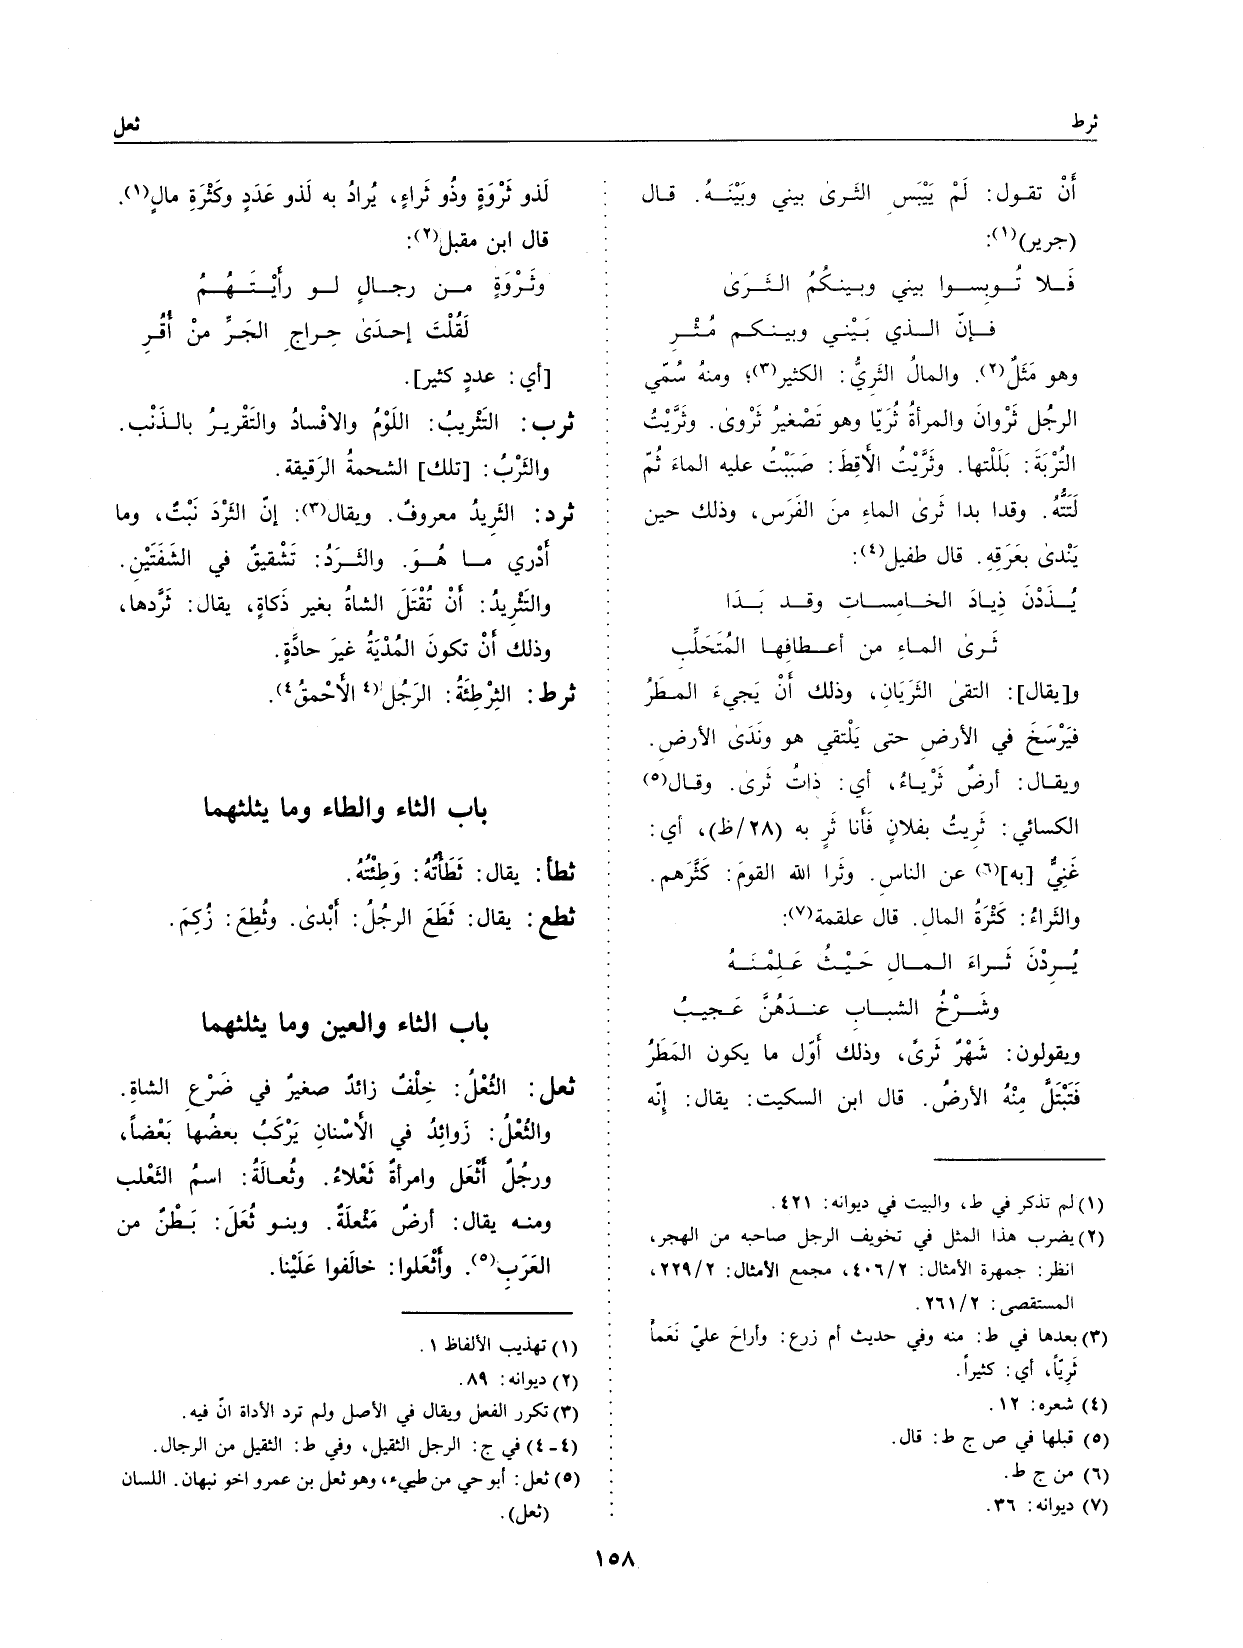 ثرط
ثعل
أَنْ تقـول: لَمْ يَيْبَسِ الثـرىٰ بيني وبَيْنَـهُ. قـال
(جرير)(١):
فَـلا تُـوبِسـوا بيني وبينكُم الثَّـرَىٰ
فـإنّ الـذي بَيْنـي وبينـكـم مُثْـر
وهو مَثَلٌ(٢). والمالُ الثَّرِيُّ: الكثير(٣)؛ ومنهُ سُمّي
الرجُل ثَرْوانَ والمرأةُ ثُرَيّا وهو تَصْغيرُ ثَرْوىٰ. وثَرَّيْتُ
التُرْبَةَ: بَلَلْتها. وثَرَّيْتُ الأَقِطَ: صَبَبْتُ عليه الماءَ ثُمّ
لَتَتُّهُ. وقدا بدا ثَرىٰ الماءِ منَ الفَرَس، وذلك حين
يَنْدىٰ بعَرَقِهِ. قال طفيل(٤):
يُـذَدْنَ ذِيـادَ الخـامِسـاتِ وقـد بَـدَا
ثَـرىٰ المـاءِ من أعـطافِهـا المُتَحَلِّبِ
و[يقال]: التقىٰ الثَرَيَانِ، وذلك أَنْ يَجيءَ المـطَرُ
فيَرْسَخَ في الأرضِ حتى يَلْتقي هو ونَدَىٰ الأرضِ.
ويقـال: أرضٌ ثَرْيـاءُ، أي: ذاتُ ثَرىٰ. وقـال(٥)
الكسائي: ثَرِيتُ بفلانٍ فَأَنا ثَرٍ به (٢٨/ظ)، أي:
غَنِيٌّ [به](٦) عن الناس. وثَرا الله القومَ: كَثَّرَهم.
والثَّراءُ: كَثْرَةُ المال. قال علقمة(٧):
يُـرِدْنَ ثَـراءَ المـالِ حَيْـثُ عَـلِمْنَـهُ
وشَـرْخُ الشبـابِ عنـدَهُنَّ عَـجيبُ
ويقولون: شَهْرٌ ثَرىً، وذلك أوّل ما يكون المَطَرُ
فَتَبْتَلُّ مِنْهُ الأرضُ. قال ابن السكيت: يقال: إنّه
(١) لم تذكر في ط، والبيت في ديوانه: ٤٢١.
(٢) يضرب هذا المثل في تخويف الرجل صاحبه من الهجر،
انظر: جمهرة الأمثال: ٤٠٦/٢، مجمع الأمثال: ٢٢٩/٢،
المستقصى: ٢٦١/٢.
(٣) بعدها في ط: منه وفي حديث أم زرع: وأراحَ عليّ نَعَماً
ثَرِيّاً، أي: كثيراً.
(٤) شعره: ١٢.
(٥) قبلها في ص ج ط: قال.
(٦) من ج ط.
(٧) ديوانه: ٣٦.
لَذو ثَرْوَةٍ وذُو ثَراءٍ، يُرادُ به لَذو عَدَدٍ وكَثْرَةِ مالٍ(١).
قال ابن مقبل(٢):
وثَـرْوَةٍ مـن رجـالٍ لـو رأَيْـتَـهُـمُ
لَقُلْتَ إحـدَىٰ حِـراجِ الجَـرِّ منْ أُقُـرِ
[أي: عددٍ كثير].
ثرب: التَثْريبُ: اللَوْمُ والافْسادُ والتَقْريرُ بالـذَنْب.
والثَرْبُ: [تلك] الشحمةُ الرَقيقة.
ثرد: الثَريدُ معروفٌ. ويقال(٣): إنّ الثَرْدَ نَبْتٌ، وما
أَدْري مـا هُـوَ. والثَـرَدُ: تَشْقيقٌ في الشَفَتَيْن.
والتَثْريدُ: أَنْ تُقْتَلَ الشاةُ بغير ذَكاةٍ، يقال: ثَرَّدها،
وذلك أَنْ تكونَ المُدْيَةُ غيرَ حادَّةٍ.
ثرط: الثِرْطِئَةُ: الرَجُلُ(٤ الأَحْمقُ٤).
باب الثاء والطاء وما يثلثهما
ثطأ: يقال: ثَطَأْتُهُ: وَطِئْتُهُ.
ثطع: يقال: ثَطَعَ الرجلُ: أَبْدىٰ. وثُطِعَ: زُكِمَ.
باب الثاء والعين وما يثلثهما
ثعل: الثُعْلُ: خِلْفٌ زائدٌ صغيرٌ في ضَرْعِ الشاةِ.
والثُعْلُ: زَوائِدُ في الأَسْنانِ يَرْكَبُ بعضُها بَعْضاً،
ورجُلٌ أَثْعَل وامرأةٌ ثَعْلاءُ. وثُعـالَةُ: اسمُ الثَعْلب
ومنـه يقال: أرضٌ مَثْعلَةٌ. وبنـو ثُعَلَ: بَـطْنٌ من
العَرَبِ(٥). وأَثْعَلوا: خالَفوا عَلَيْنا.
(١) تهذيب الألفاظ ١.
(٢) ديوانه: ٨٩.
(٣) تكرر الفعل ويقال في الأصل ولم ترد الأداة انّ فيه.
(٤-٤) في ج: الرجل الثقيل، وفي ط: الثقيل من الرجال.
(٥) ثعل: أبو حي من طيىء، وهو ثعل بن عمرو اخو نبهان. اللسان
(ثعل).
١٥٨